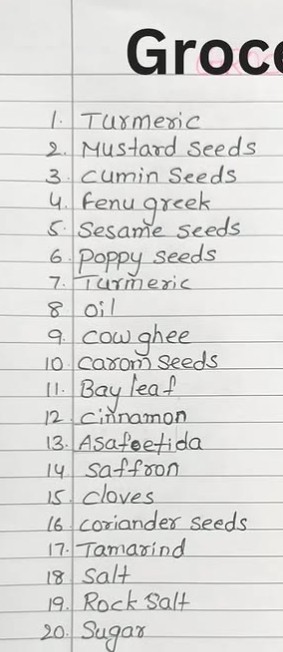 Groce
1. Turmeric
2. Mustard seeds
3. Cumin Seeds
4. Fenugreek
5. Sesame seeds
6. Poppy seeds
7. Turmeric
8 oil
9. cow ghee
10. carom seeds
11. Bay leaf
12. cinnamon
13. Asafoetida
14. saffron
15. cloves
16. coriander seeds
17. Tamarind
18. Salt
19. Rock Salt
20. Sugar